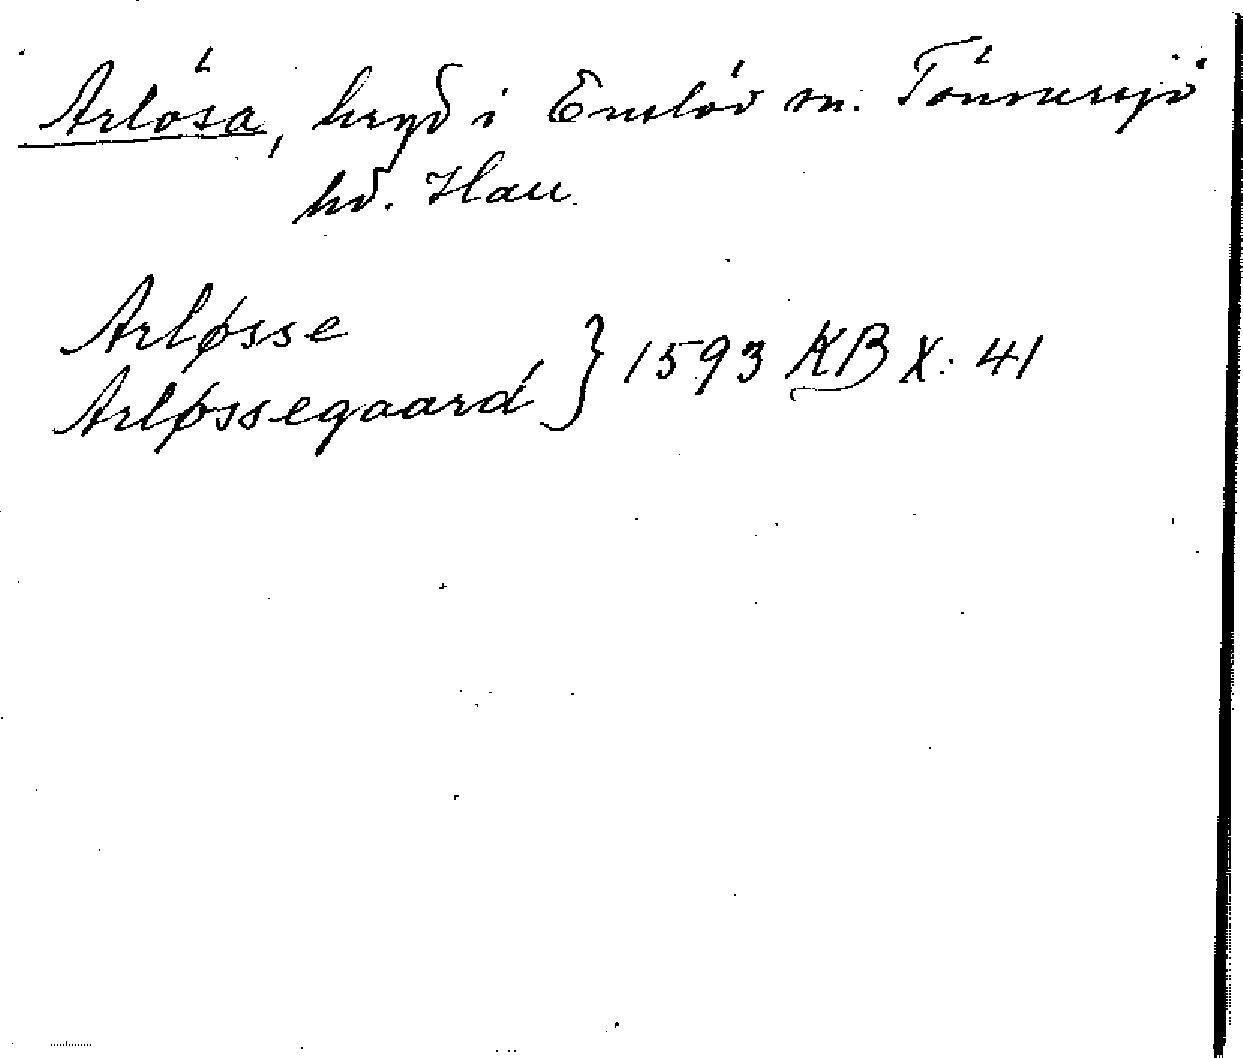 Arlösa, hryd i Enslöv sn. Tönnersjö
hd. Hall.
Arløsse
Arløssegaard } 1593 KB X: 41